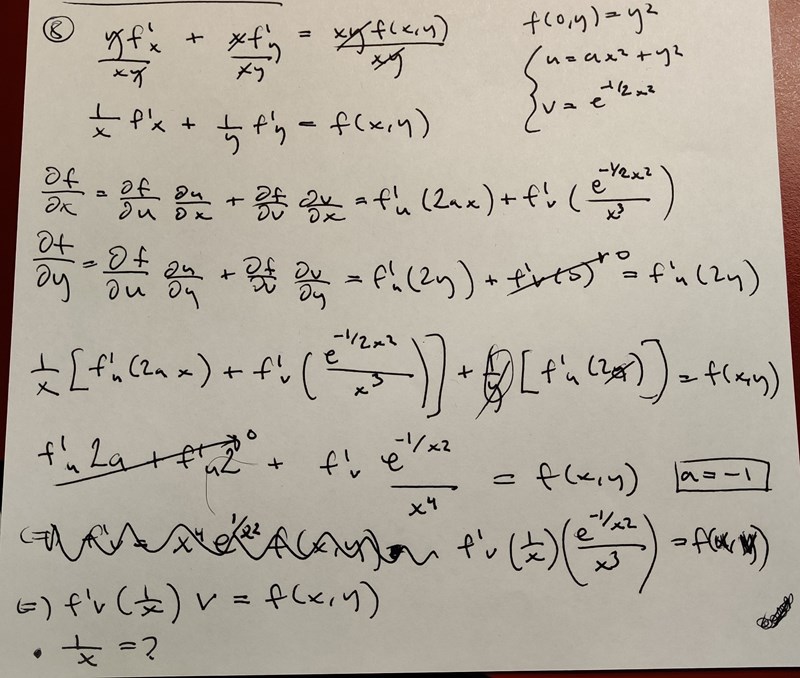 ⑧ yf'x/xy + xf'y/xy = xyf(x,y)/xy
f(0,y) = y²
{ u = ax² + y²
v = e^(-1/2x²)
1/x f'x + 1/y f'y = f(x,y)
∂f/∂x = ∂f/∂u ∂u/∂x + ∂f/∂v ∂v/∂x = f'u (2ax) + f'v (e^(-1/2x²)/x³)
∂f/∂y = ∂f/∂u ∂u/∂y + ∂f/∂v ∂v/∂y = f'u (2y) + f'v (0) → 0 = f'u (2y)
1/x [f'u (2ax) + f'v (e^(-1/2x²)/x³)] + 1/y [f'u (2y)] = f(x,y)
f'u 2a + f'u 2 → 0 + f'v e^(-1/x2)/x⁴ = f(x,y) a = -1
f'v (1/x) (e^(-1/x2)/x³) = f(x,y)
⇒ f'v (1/x) v = f(x,y)
• 1/x = ?